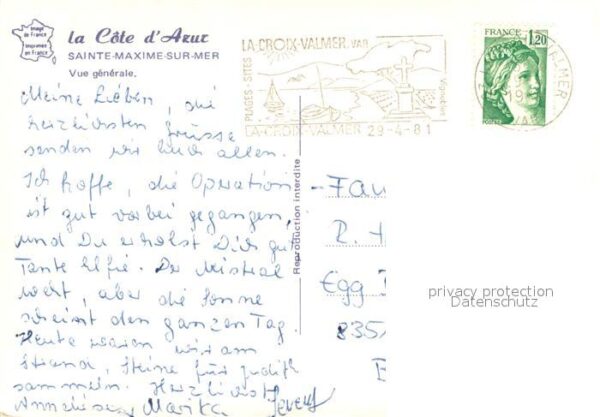 Image de France
Imprimée en France
la Côte d'Azur
SAINTE-MAXIME-SUR-MER
Vue générale.
LA-CROIX-VALMER. VAR
PLAGES-SITES
Vignobles
LA-CROIX-VALMER 29-4-81
FRANCE
1,20
VALMER
VAR
Reproduction interdite
Meine Lieben, die
herzlichsten Grüsse
senden wir Euch allen.
Ich hoffe, die Operation
ist gut vorbei gegangen,
und Du erholst Dich gut
Tante Elfie. Der Mistral
weht, aber die Sonne
scheint den ganzen Tag.
Heute waren wir am
Strand, Steine für Judith
sammeln. Herzlichst
Annelise Marika
Fam
R. H
Egg
835
privacy protection
Datenschutz